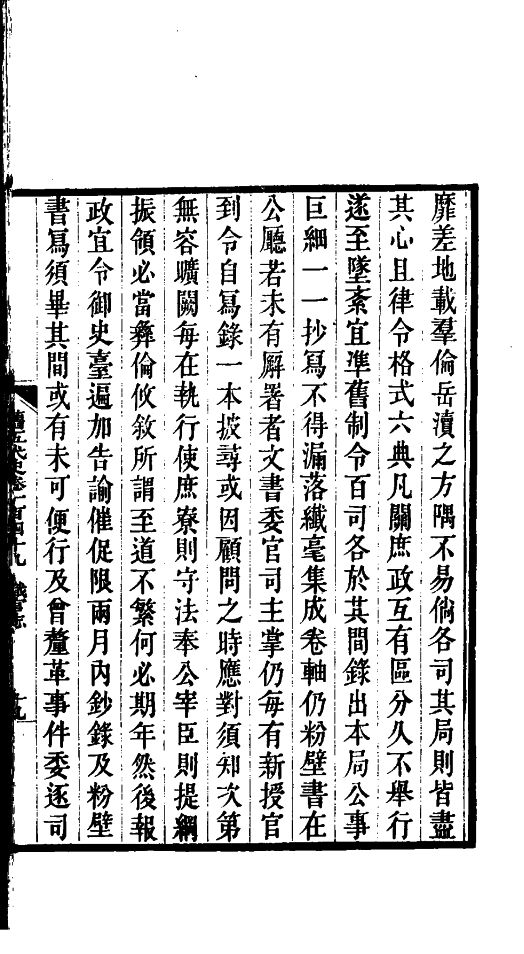 靡差地載羣倫岳瀆之方隅不易倘各司其局則皆盡
其心且律令格式六典凡關庶政互有區分久不舉行
遂至墜紊宜準舊制令百司各於其間錄出本局公事
巨細一一抄寫不得漏落纖毫集成卷軸仍粉壁書在
公廳若未有廨署者文書委官司主掌仍每有新授官
到令自寫錄一本披尋或因顧問之時應對須知次第
無容曠闕每在執行使庶寮則守法奉公宰臣則提綱
振領必當彝倫攸敘所謂至道不繁何必期年然後報
政宜令御史臺遍加告諭催促限兩月內鈔錄及粉壁
書寫須畢其間或有未可便行及曾釐革事件委逐司
舊五代史卷一百四十九 職官志 十九